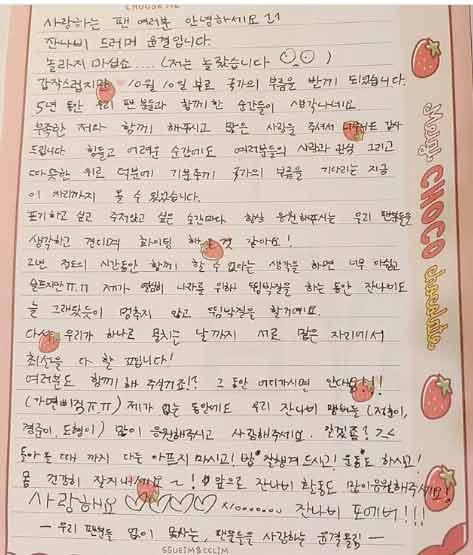 CHOUSE ME
사랑하는 팬 여러분 안녕하세요!!
잔나비 드러머 윤결입니다.
놀라지 마십쇼... (저는 놀랐습니다
갑작스럽지만 10월 10일 부로 국가의 부름을 받게 되었습니다.
5년 동안 우리 팬분들과 함께 한 순간들이 생각나네요.
부족한 저와 함께 해주시고 많은 사랑을 주셔서 너무나도 감사
드립니다. 힘들고 어려운 순간에도 여러분들의 사랑과 관심 그리고
따뜻한 위로 덕분에 기분좋게 국가의 부름을 기다리는 지금
이 자리까지 올 수 있었습니다.
포기하고 싶고 주저앉고 싶은 순간마다 항상 응원해주시는 우리 팬분들을
생각하고 견디며 화이팅 해 것 같아요!
2년 정도의 시간동안 함께 할 수 없다는 생각을 하면 너무 아쉽고
슬프지만ㅠㅠ 제가 열심히 나라를 위해 뜀박질을 하는 동안 잔나비도
늘 그래왔듯이 멈추지 않고 뜀박질을 할거예요.
다시 우리가 하나로 뭉치는 날까지 서로 맡은 자리에서
최선을 다 할 겁니다!
여러분도 함께 해 주실거죠!? 그 동안 어디가시면 안대용!!!
(가면삐짐ㅠㅠ) 제가 없는 동안에도 우리 잔나비 멤버들 (정훈이,
경준이, 도형이) 많이 응원해주시고 사랑해주세요. 알겠죠? >.<
돌아올 때 까지 다들 아프지 마시고! 밥 잘챙겨 드시고! 운동도 하시고!
몸 건강히 잘지내세요~! 앞으로 잔나비 활동도 많이응원해주세요!!
사랑해요 ♡♡♡♡ 잔나비 포에버!!!
- 우리 팬분들 많이 사랑하는, 팬분들을 사랑하는 윤결올림 -
SSUEIM&CCLIM
Merry CHOCO chocolate